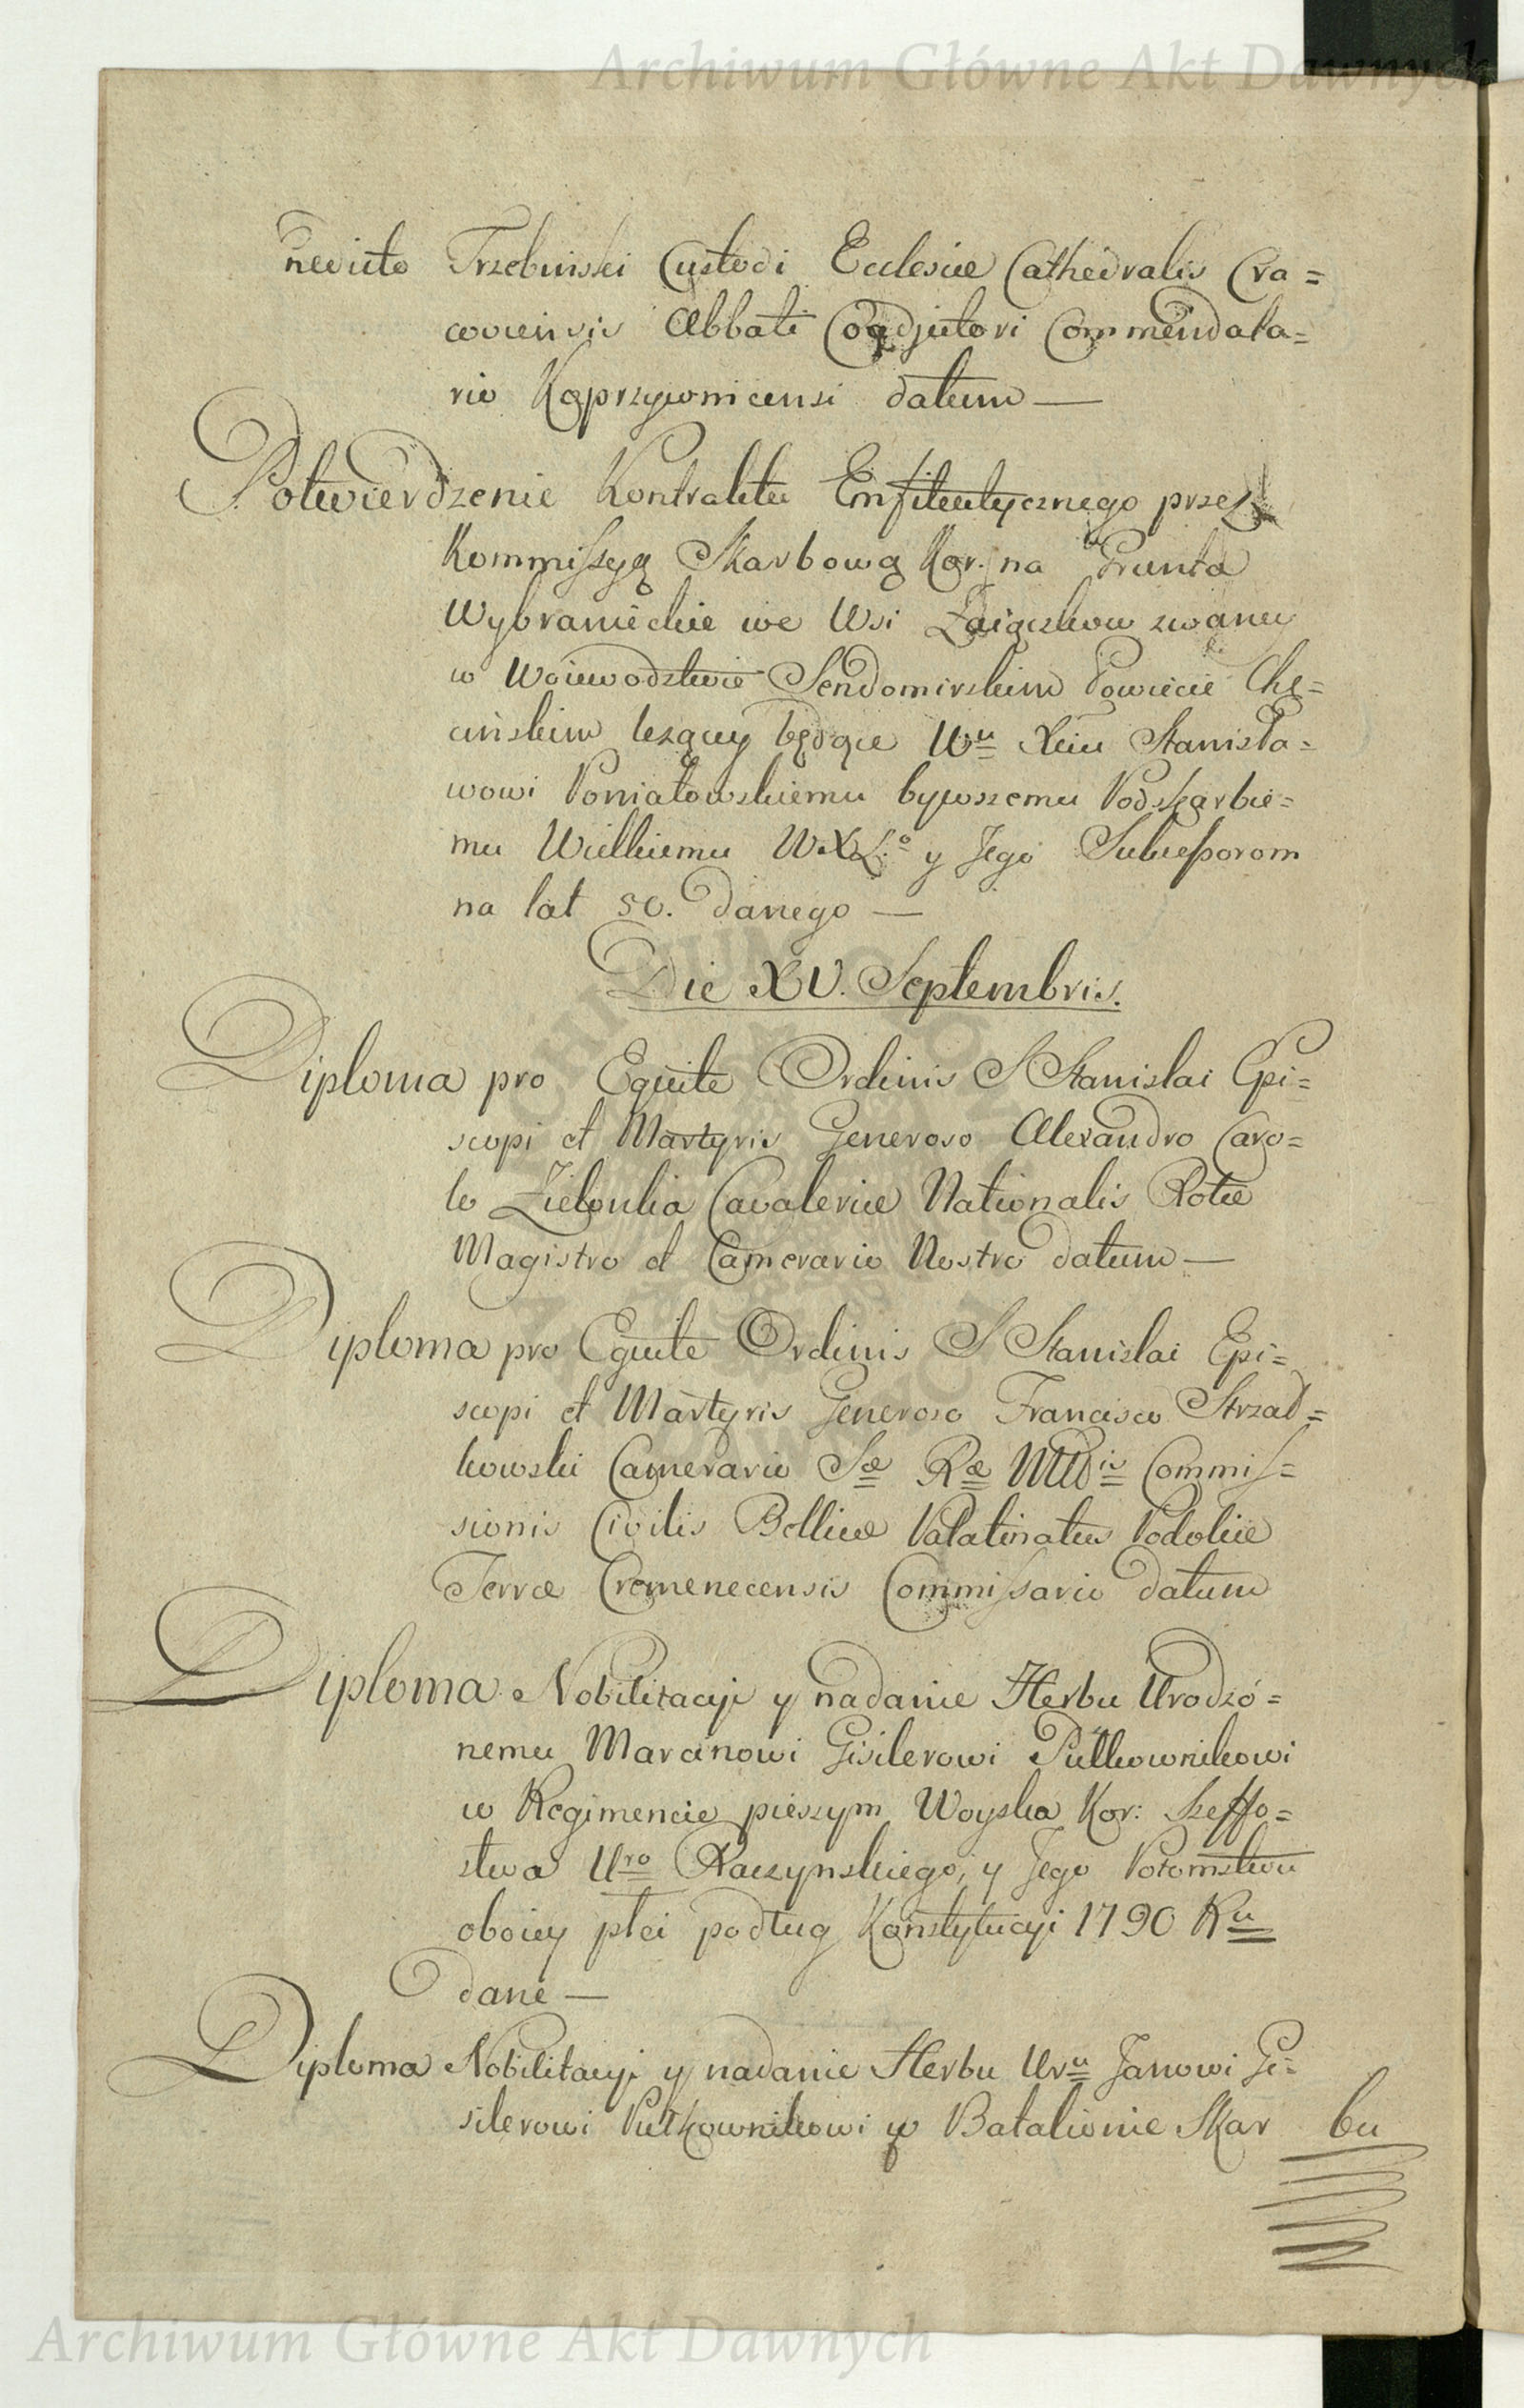 Archiwum Główne Akt Dawnych
nedicto Trzebinski Custodi Ecclesiæ Cathedralis Cra=
coviensis Abbati Coadjutori Commendata=
rio Koprzywnicensi datum —
Potwierdzenie Kontraktu Emfiteutycznego przez
Kommissyą Skarbową Kor. na Grunta
Wybranieckie we Wsi zwaney
w Woiewodztwie Sendomirskim Powiecie Chę=
cińskim leżącey będące Wu Xciu Stanisła=
wowi Poniatowskiemu bywszemu Podskarbie=
mu Wielkiemu W.X.L.o y Jego Sukcessorom
na lat 50. danego —
Die XV. Septembris.
Diploma pro Equite Ordinis S Stanislai Epi=
scopi et Martyris Generoso Alexandro Caro=
lo Zielonka Cavaleriæ Nationalis Rotæ
Magistro et Camerario Nostro datum —
Diploma pro Equite Ordinis S Stanislai Epi=
scopi et Martyris Generoso Francisco Strzał=
kowski Camerario Sæ Ræ Mttis Commis=
sionis Civilis Bellicæ Palatinatus Podoliæ
Terræ Cremenecensis Commissario datum
Diploma Nobilitacyi y nadanie Herbu Urodzo=
nemu Marcinowi Gisilerowi Pułkownikowi
w Regimencie pieszym Woyska Kor: Szeffo=
stwa Uro Raczynskiego, y Jego Potomstwu
oboiey płci podług Konstytucyi 1790 Ru
dane —
Diploma Nobilitacyi y nadanie Herbu Uru Janowi Gi=
silerowi Pułkownikowi w Batalionie Skar bu
Archiwum Główne Akt Dawnych